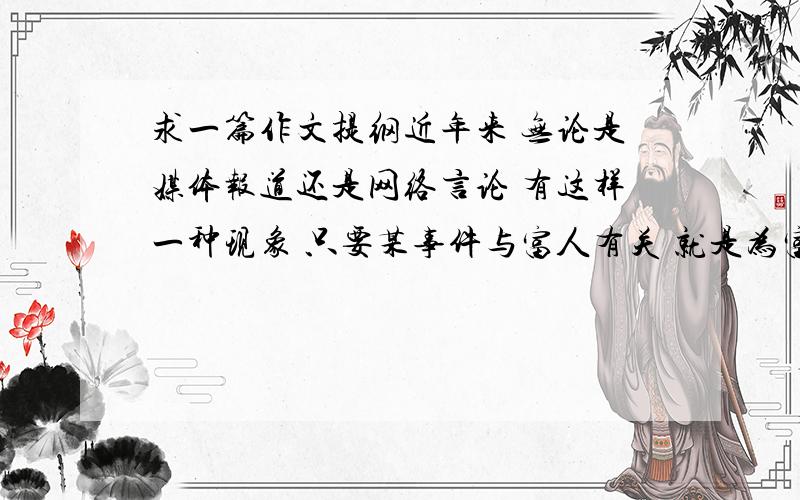 求一篇作文提纲近年来 无论是
媒体报道还是网络言论 有这样
一种现象 只要某事件与富人有关 就是为富